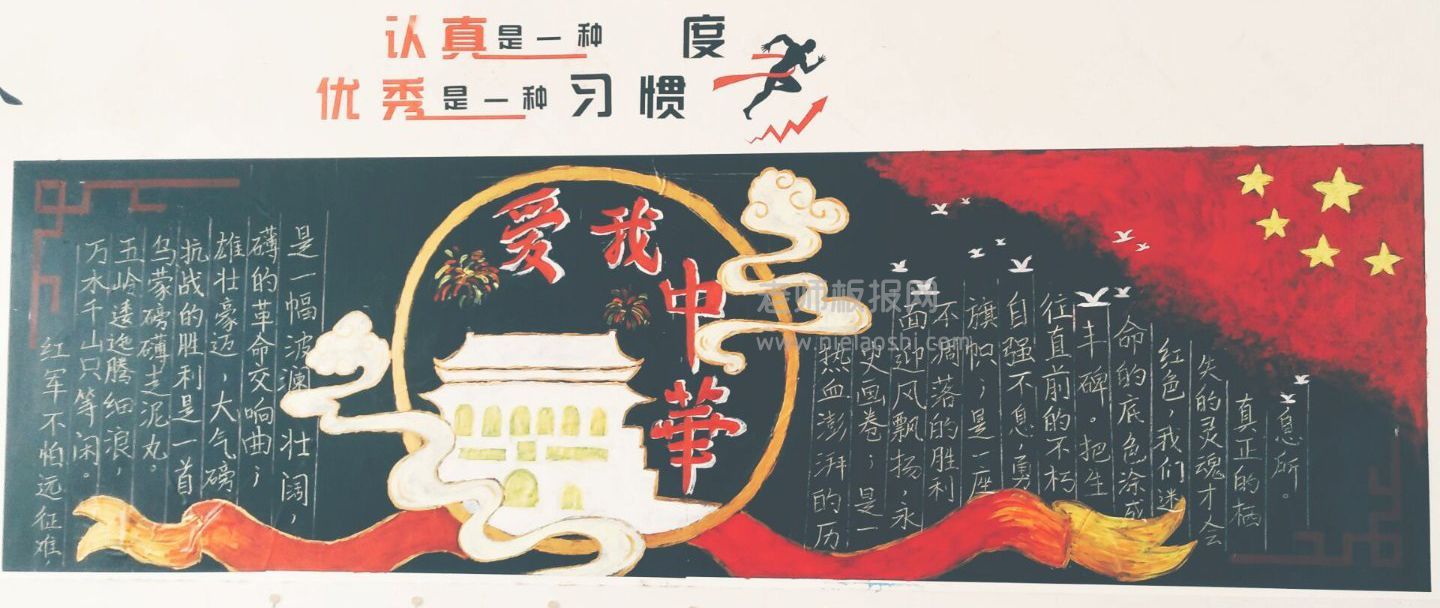 认真是一种 度
优秀是一种习惯
爱我中華
红军不怕远征难，
万水千山只等闲。
五岭逶迤腾细浪，
乌蒙磅礴走泥丸。
抗战的胜利是一首
雄壮豪迈，大气磅
礴的革命交响曲；
是一幅波澜壮阔，
热血澎湃的历
史画卷；是一
面迎风飘扬、永
不凋落的胜利
旗帜；是一座
自强不息、勇
往直前的不朽
丰碑。把生
命的底色涂成
红色，我们迷
失的灵魂才会
真正的栖
息所。
老师板报网
www.pielaoshi.com